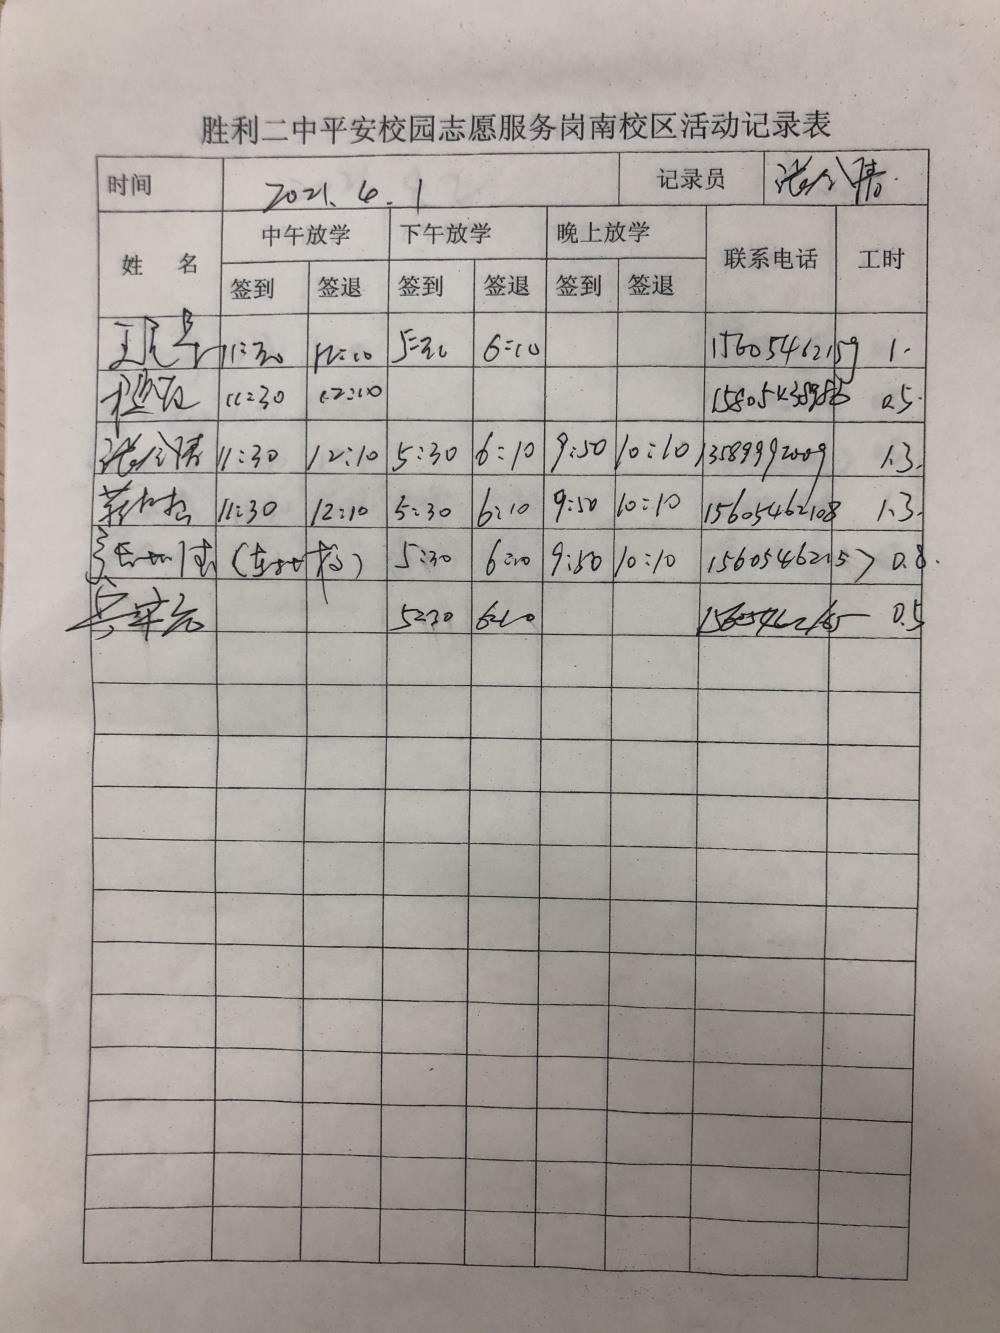 胜利二中平安校园志愿服务岗南校区活动记录表
时间 2021.6.1 记录员
姓 名 中午放学 下午放学 晚上放学 联系电话 工时
签到 签退 签到 签退 签到 签退
11:30 12:10 5:30 6:10 15605462159 1.
11:30 12:10 0.5.
11:30 12:10 5:30 6:10 9:50 10:10 13589992009 1.3.
11:30 12:10 5:30 6:10 9:50 10:10 15605462108 1.3.
5:30 6:10 9:50 10:10 15605462157 0.8.
5:30 6:10 15605462165 0.5